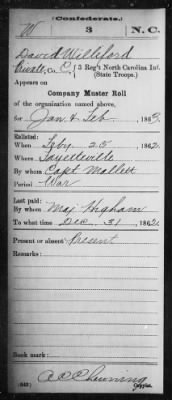 (Confederate.)
W 3 N.C.
David Williford
Private, Co. C, 3 Reg't North Carolina Inf.
(State Troops.)
Appears on
Company Muster Roll
of the organization named above,
for Jan & Feb, 1863.
Enlisted:
When Feby 25, 1862.
Where Fayetteville
By whom Capt Mallett
Period War
Last paid:
By whom Maj Higham
To what time Dec 31, 1862.
Present or absent Present
Remarks:
Book mark:
(642)
Copyist.